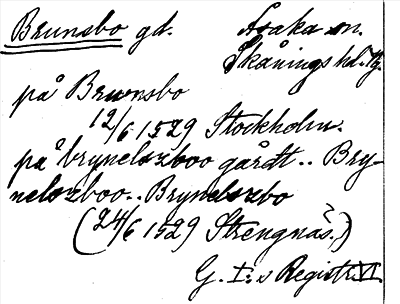 Brunsbo gd. Asaka sn.
Skånings hd. Vg.
på Brunsbo
12/6 1529 Stockholm.
på brynelszboo gårdt.. Bry-
nelszboo.. Brynelszbo
(24/6 1529 Strengnäs.)
G. I:s Registr. VI.